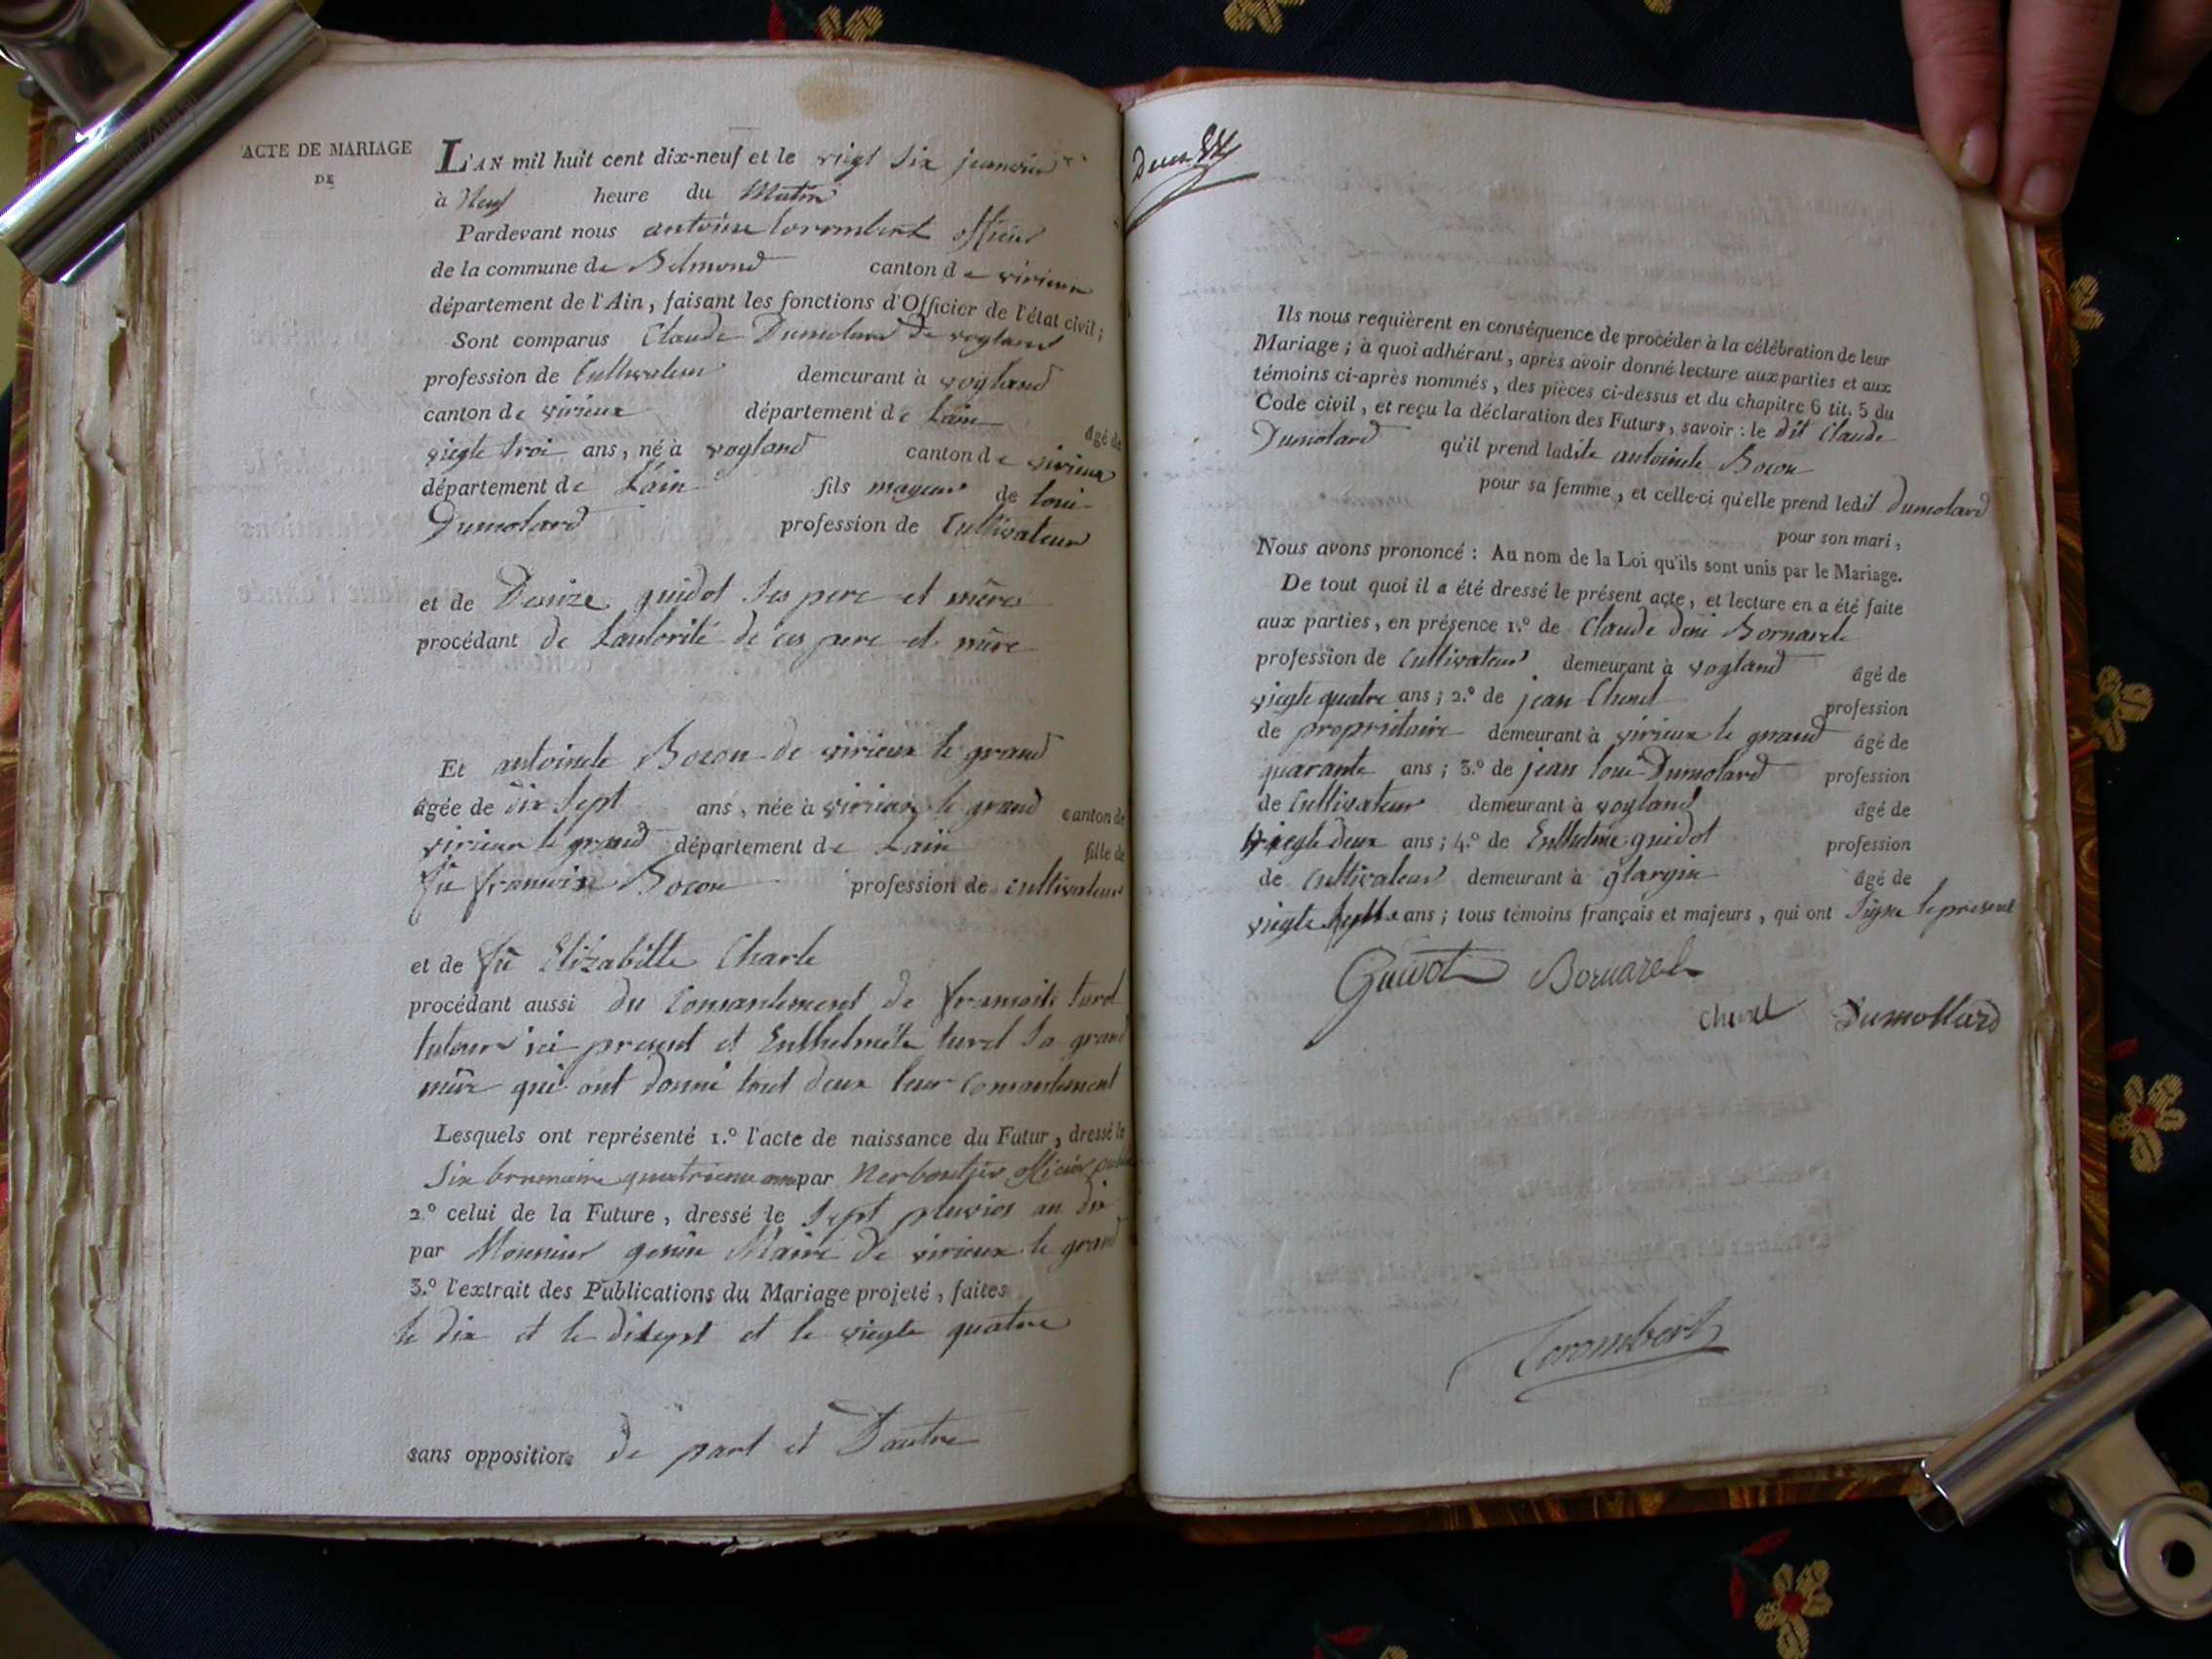 ACTE DE MARIAGE
DE
L'AN mil huit cent dix-neuf et le vingt six
à Neuf heure du Matin
Pardevant nous antoine Corombert officier
de la commune de Belmond canton de virieux
département de l'Ain, faisant les fonctions d'Officier de l'état civil;
Sont comparus Claude Dumolard de vogland
profession de Cultivateur demeurant à vogland
canton de virieux département de Lain âgé de
viegte troi ans, né à vogland canton de virieux
département de Lain fils mageur de loui
Dumolard profession de Cultivateur
et de Denize guidot Ses pere et mère
procédant de Lautorité de ces pere et mère
Et antoinete Bocon de virieux le grand
âgée de dix Sept ans, née à virieux le grand canton de
virieux le grand département de Lain fille de
fü Bocon profession de cultivateur
et de fü Elizabette Charle
procédant aussi du Consantement de turel
tuteur ici present et Enthelmete turel Sa grand
mère qui ont donné tout deux leur Consantement
Lesquels ont représenté 1.º l'acte de naissance du Futur, dressé le
Six brumaire quatrieme par officier
2.º celui de la Future, dressé le Sept pluvios an dix
par Monsieur genin Maire de virieux le grand
3.º l'extrait des Publications du Mariage projeté, faites
le dix et le disept et le viegte quatre
sans opposition de part et Dautre
Ils nous requièrent en conséquence de procéder à la célébration de leur
Mariage; à quoi adhérant, après avoir donné lecture aux parties et aux
témoins ci-après nommés, des pièces ci-dessus et du chapitre 6 tit. 5 du
Code civil, et reçu la déclaration des Futurs, savoir: le dit Claude
Dumolard qu'il prend ladite antoinete Bocon
pour sa femme, et celle-ci qu'elle prend ledit Dumolard
pour son mari,
Nous avons prononcé: Au nom de la Loi qu'ils sont unis par le Mariage.
De tout quoi il a été dressé le présent acte, et lecture en a été faite
aux parties, en présence 1.º de Claude deni Bornarel
profession de Cultivateur demeurant à vogland âgé de
viegte quatre ans; 2.º de jean Chenel profession
de propriétaire demeurant à virieux le grand âgé de
quarante ans; 3.º de jean loui Dumolard profession
de Cultivateur demeurant à vogland âgé de
viegte deux ans; 4.º de Enthelme guidot profession
de Cultivateur demeurant à glargin âgé de
viegte ans; tous témoins français et majeurs, qui ont Signé le present
Guidot Bornarel
Chenel Dumollard
Corombert